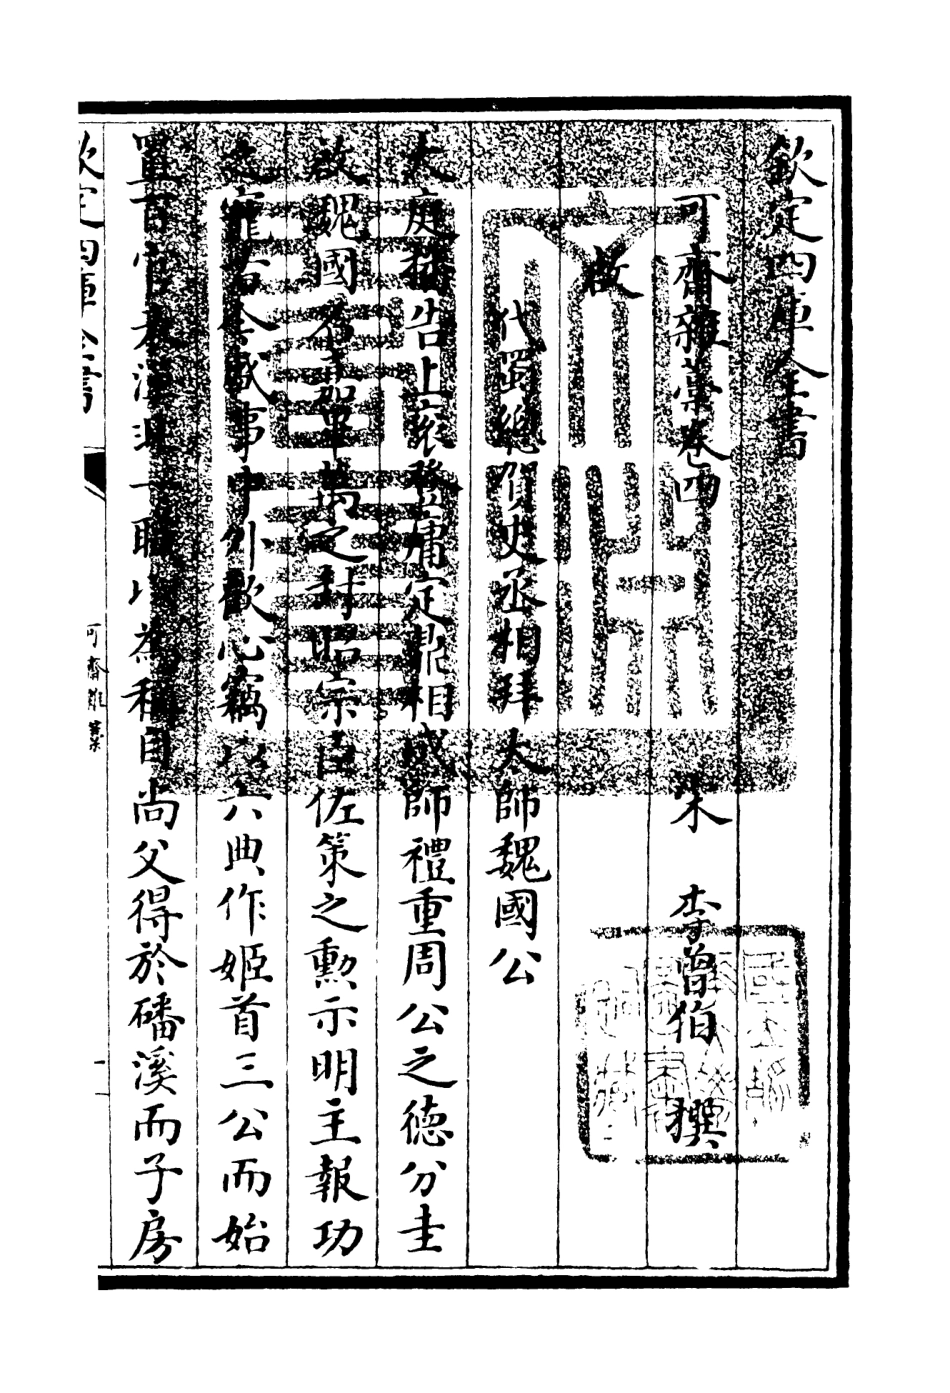 欽定四庫全書
可齋雜藁卷四 宋 李曾伯 撰
啟
代蜀總賀史丞相拜太師魏國公
大庭播告上衮登庸定鼎相成師禮重周公之德分圭
啟魏國名嘉畢萬之封昭宗臣佐策之勲示明主報功
之寵古今盛事中外歡心竊以六典作姬首三公而始
置百官表漢非一職以為稱自尚父得於磻溪而子房
欽定四庫全書
可齋雜藁